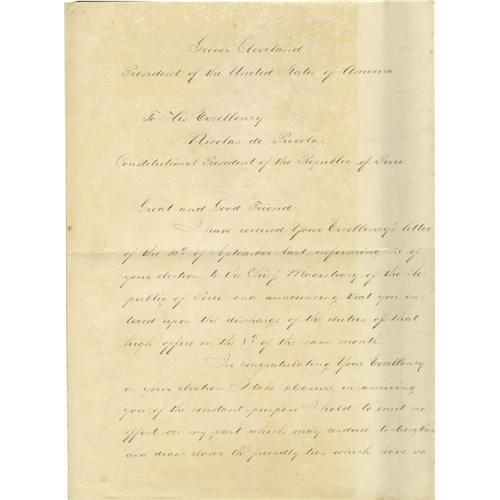 Grover Cleveland
President of the United States of America
To His Excellency
Nicolas de Pierola,
Constitutional President of the Republic of Peru
Great and Good Friend:
I have received Your Excellency's letter
of the 10th of September last, informing me of
your election to the Chief Magistracy of the Re-
public of Peru and announcing that you en-
tered upon the discharge of the duties of that
high office on the 8th of the same month.
In congratulating Your Excellency
on your election I take pleasure in assuring
you of the constant purpose I hold to omit no
effort on my part which may conduce to strengthen
and draw closer the friendly ties which have so